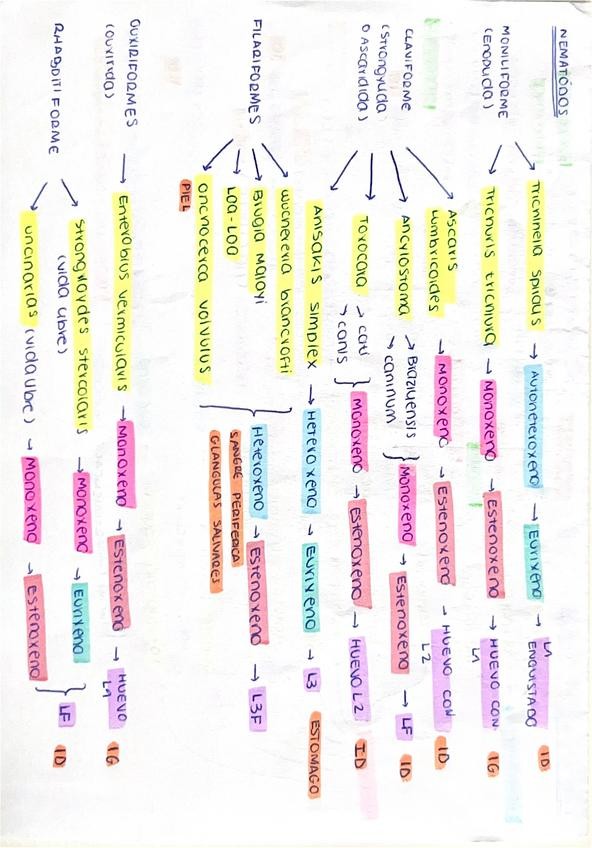 NEMATODOS
MONILIFORME
(Enoplida)
Trichinella spiralis → Autoheteroxeno → Eurixeno → L1 ENQUISTADO ID
Trichuris trichiura → Monoxeno → Estenoxeno → HUEVO CON L1 IG
CLAVIFORME
(Strongylida
o Ascaridida)
Ascaris
lumbricoides → Monoxeno → Estenoxeno → HUEVO CON L2 ID
Ancilostoma → Braziliensis
→ caninum } Monoxeno → Estenoxeno → LF ID
Toxocara → cati
→ canis } Monoxeno → Estenoxeno → HUEVO L2 ID
Anisakis simplex → Heteroxeno → Eurixeno → L3 ESTOMAGO
FILARIFORMES
Wuchereria bancrofti
Brugia Malayi
Loa-Loa
Onchocerca volvulus
PIEL
} Heteroxeno → Estenoxeno → L3F
SANGRE PERIFERICA
GLANGULAS SALIVARES
OUXIRIFORMES
(ouxirida) → Enterobius vermicularis → Monoxeno → Estenoxeno → HUEVO L1 IG
RHABDITIFORME
Strongyloydes stercolaris → Monoxeno → Eurixeno
(vida libre)
uncinarias (vida libre) → Monoxeno → Estenoxeno
} LF ID